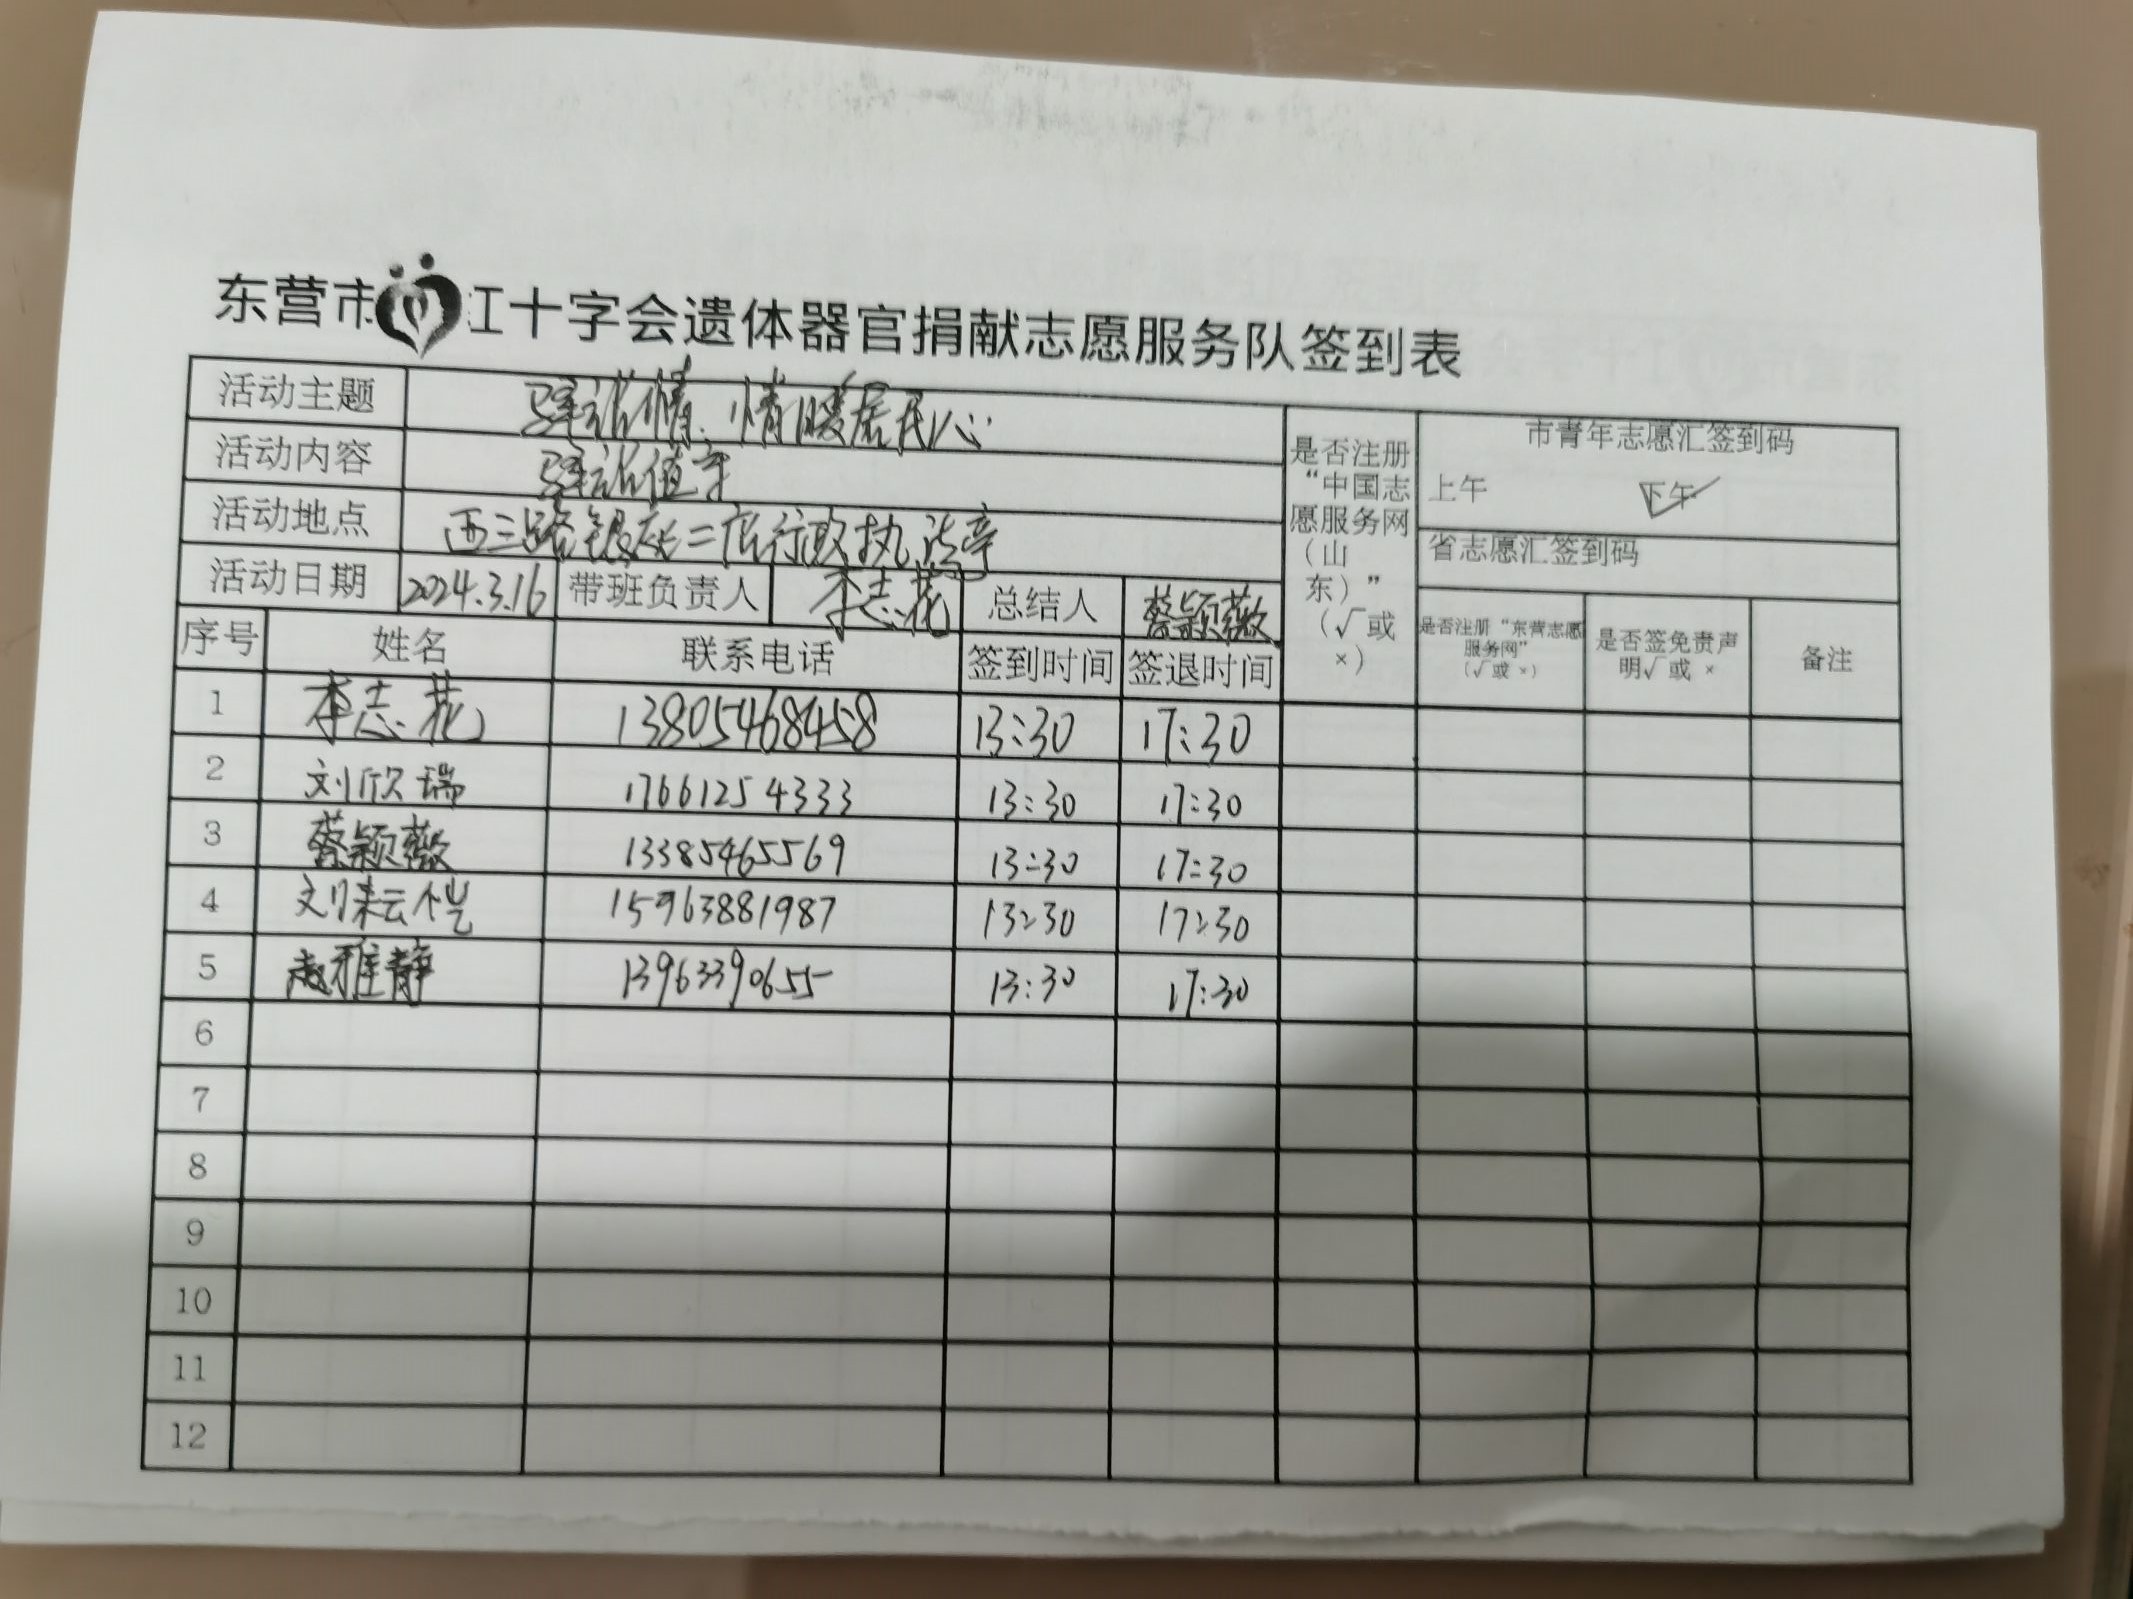 东营市红十字会遗体器官捐献志愿服务队签到表
活动主题 驿站情.情暖居民心
活动内容 驿站值守
活动地点 西三路银座二店行政执法亭
活动日期 2024.3.16 带班负责人 李志花 总结人 蔡颖薇
是否注册“中国志愿服务网（山东）”（√或×）
市青年志愿汇签到码
上午 下午✓
省志愿汇签到码
序号 姓名 联系电话 签到时间 签退时间 是否注册“东营志愿服务网”（√或×） 是否签免责声明√或× 备注
1 李志花 13805468458 13:30 17:30
2 刘欣瑞 17661254333 13:30 17:30
3 蔡颖薇 13385465569 13:30 17:30
4 刘耘恺 15963881987 13:30 17:30
5 赵雅静 13963390655 13:30 17:30
6
7
8
9
10
11
12